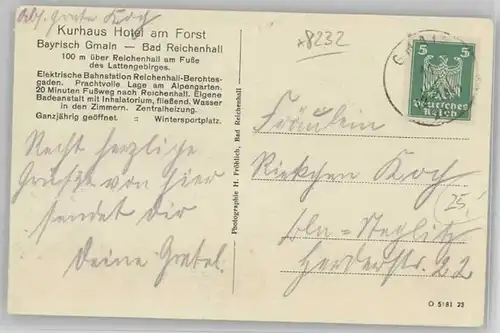 Abs. Grete Koch
Kurhaus Hotel am Forst
Bayrisch Gmain — Bad Reichenhall
100 m über Reichenhall am Fuße
des Lattengebirges.
Elektrische Bahnstation Reichenhall-Berchtes-
gaden. Prachtvolle Lage am Alpengarten.
20 Minuten Fußweg nach Reichenhall. Eigene
Badeanstalt mit Inhalatorium, fließend. Wasser
in den Zimmern. Zentralheizung.
Ganzjährig geöffnet. :: Wintersportplatz.
Recht herzliche
Grüße von hier
sendet dir
Deine Gretel.
Photographie H. Fröhlich, Bad Reichenhall
8232
5 5
Deutsches
Reich
Fräulein
Riekchen Koch
Bln-Steglitz
Herderstr. 22
25,-
O 5181 23